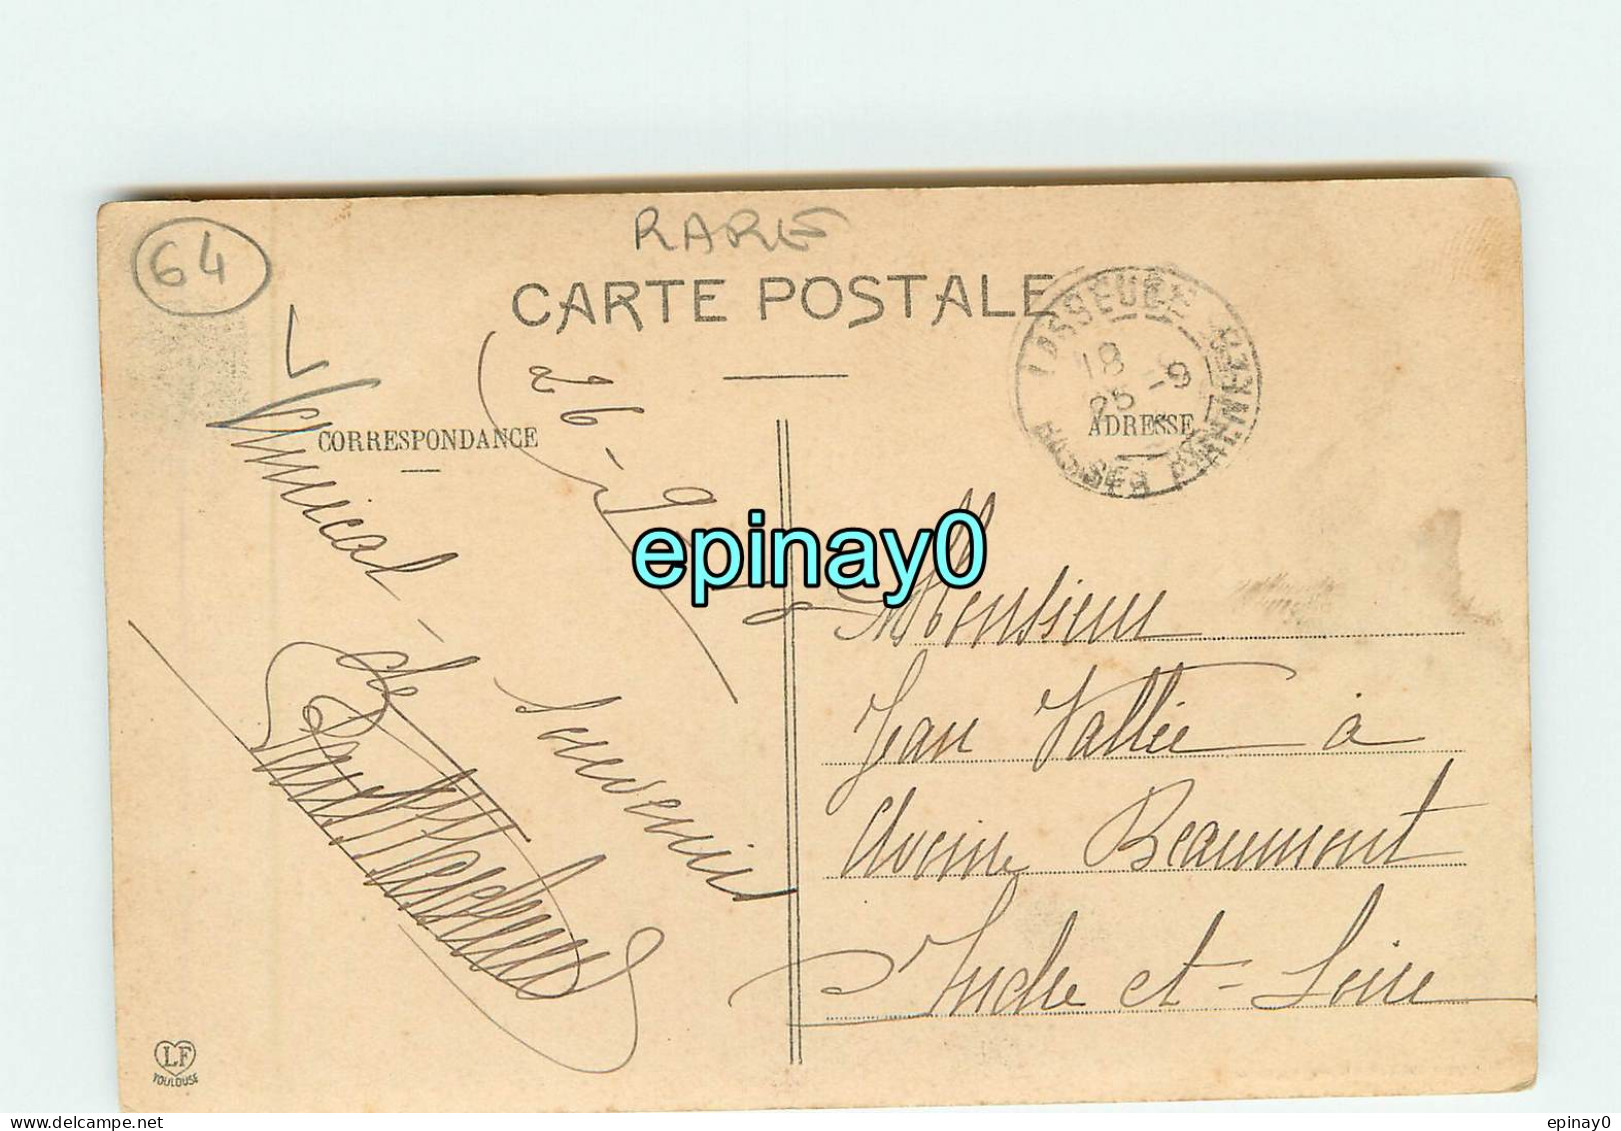 64
RARE
CARTE POSTALE
18
25 -9
BASSES PYRENEES
CORRESPONDANCE
ADRESSE
26-9
Amical
de
Souvenir
Monsieur
Jean Vallée à
Avoine Beaumont
Indre et-Loire
LF
TOULOUSE
epinay0
epinay0